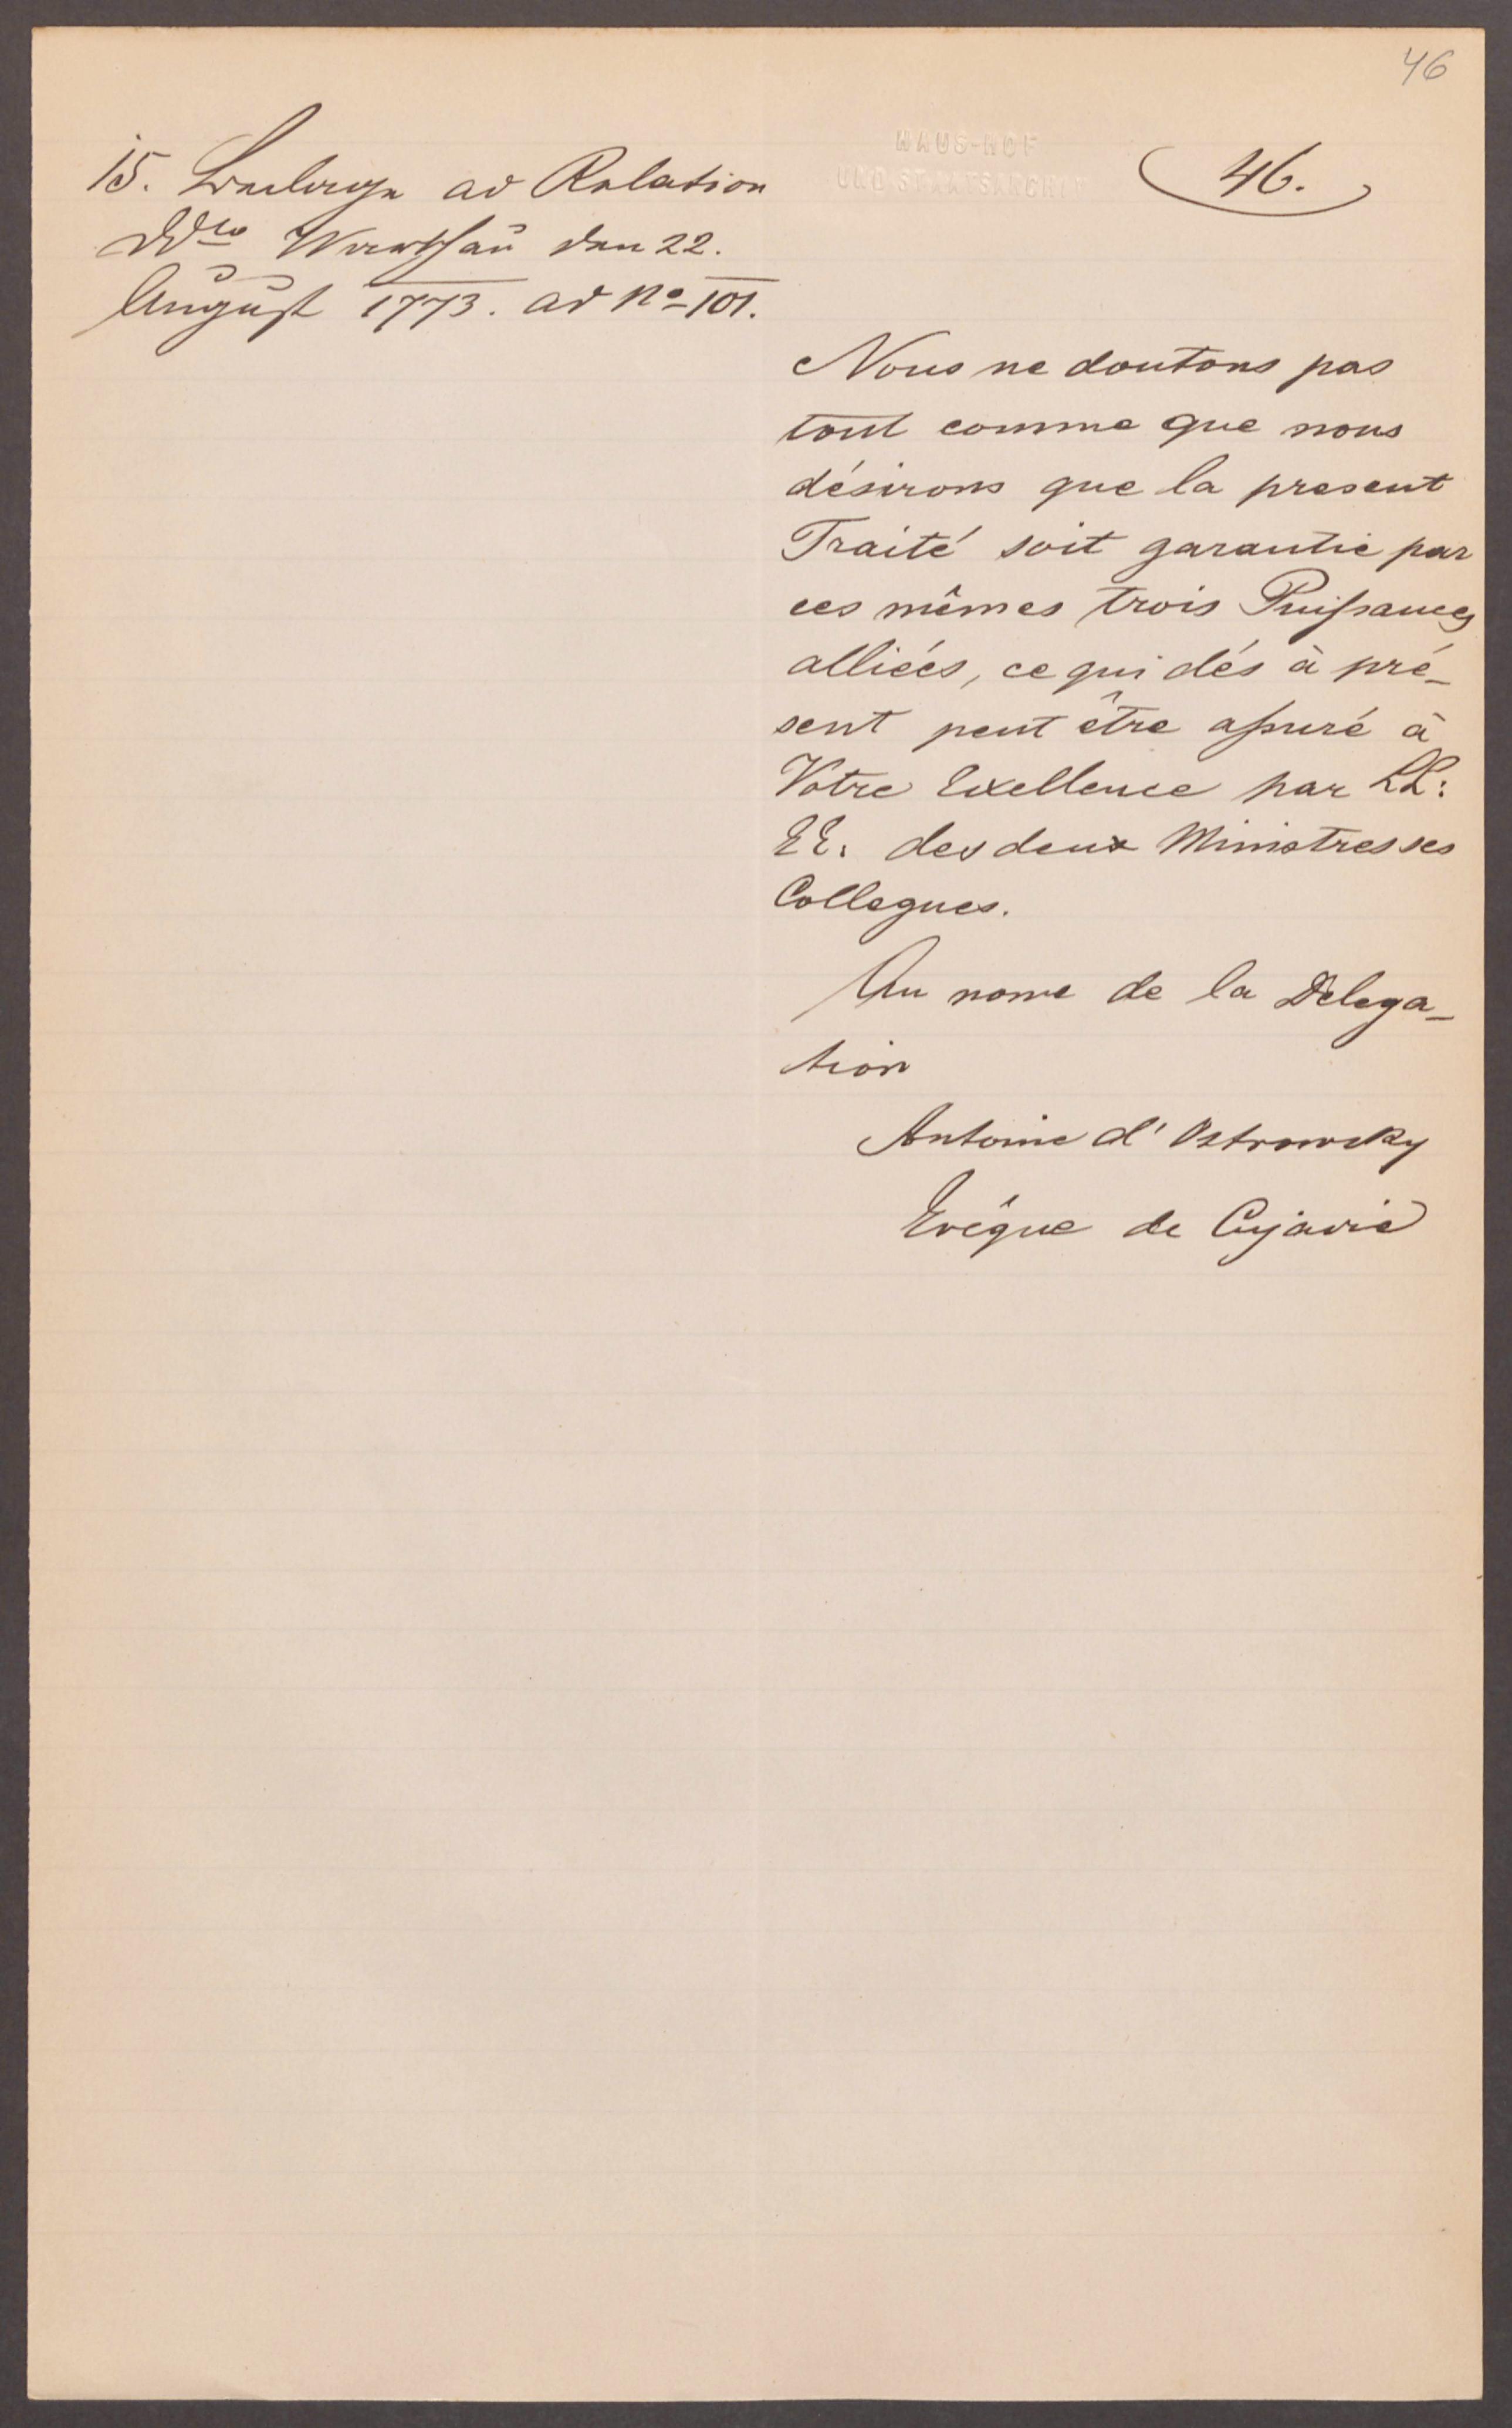 46
15. Beilage ad Relation
Ddto Warschau den 22.
August 1773. ad No 101.
HAUS-HOF
UND STAATSARCHIV
46.
Nous ne doutons pas
tout comme que nous
désirons que la present
Traité soit garantie par
ces mêmes trois Puissances
alliées, ce qui dés à pré-
sent peut être assuré à
Votre Exellence par LL:
EE. des deux Ministres ses
Collegues.
Au nome de la Delega-
tion
Antoine d'Ostrowsky
Evêque de Cujavie